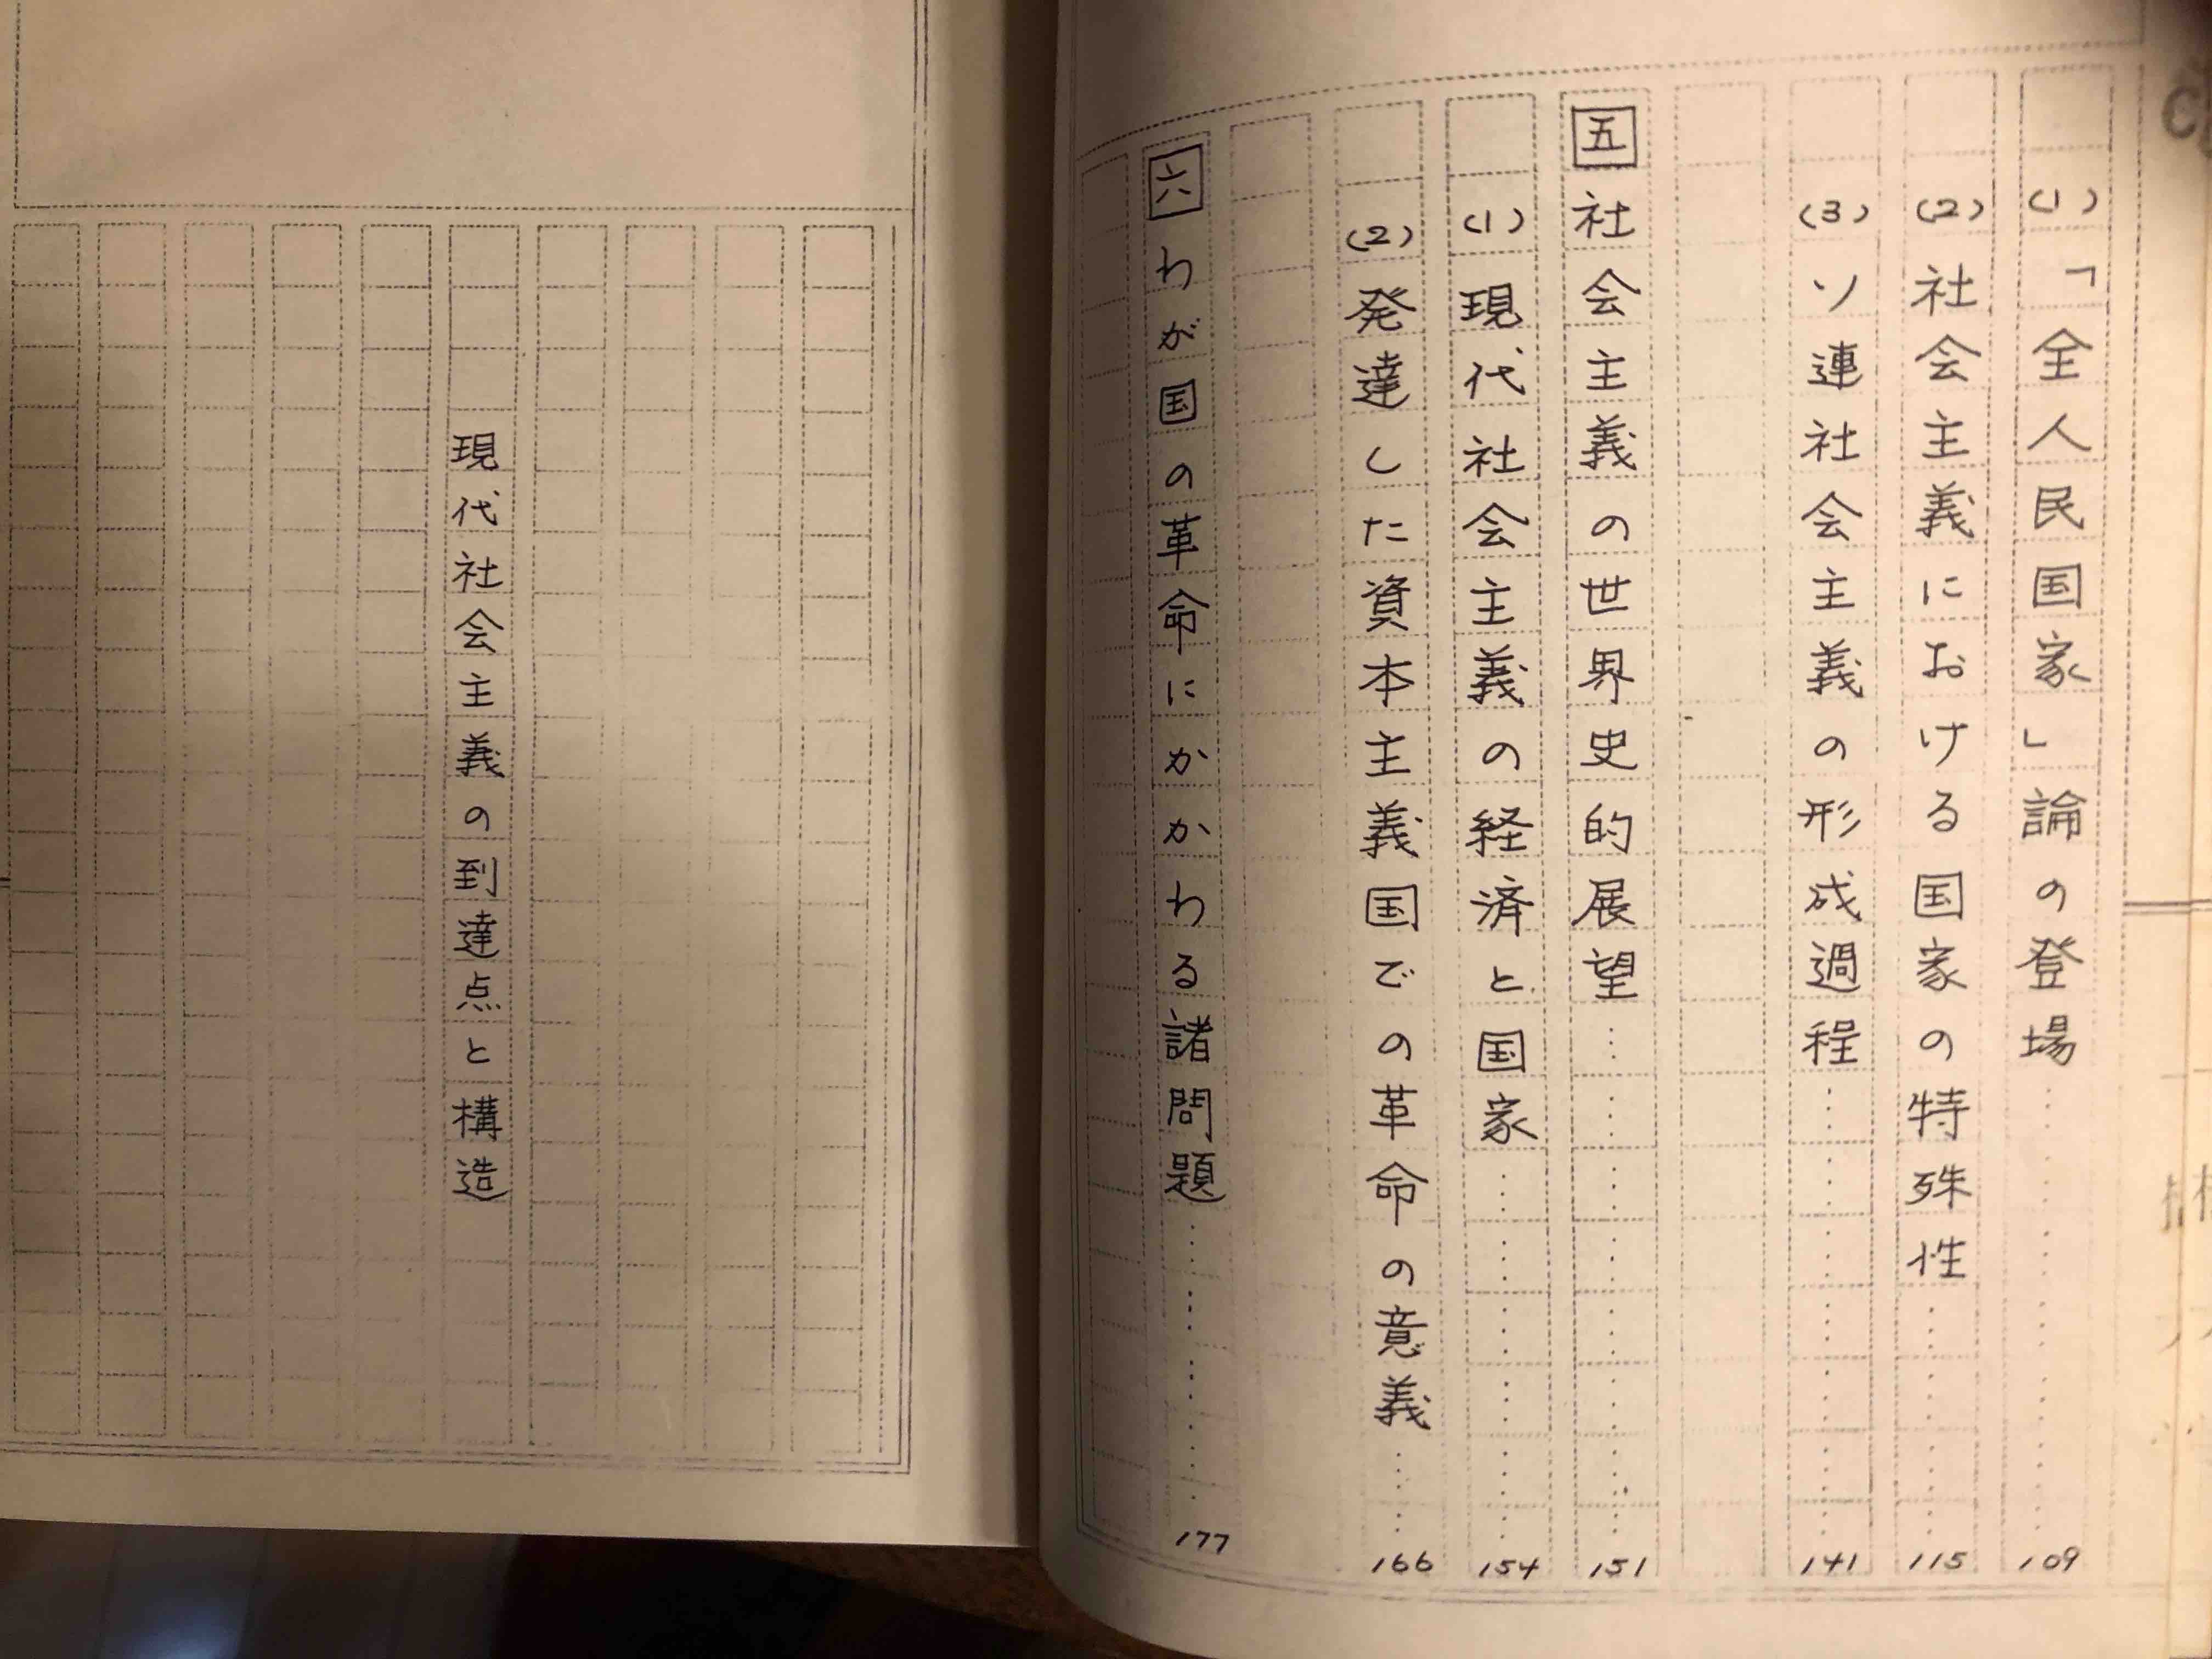 (1)「全人民国家」論の登場……………109
(2)社会主義における国家の特殊性……………115
(3)ソ連社会主義の形成過程……………141
五 社会主義の世界史的展望……………151
(1)現代社会主義の経済と国家……………154
(2)発達した資本主義国での革命の意義……………166
六 わが国の革命にかかわる諸問題……………177
現代社会主義の到達点と構造